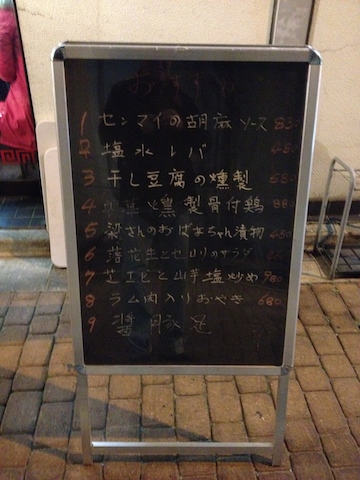 おすすめ
1 センマイの胡麻ソース 830
2 塩水レバ 480
3 干し豆腐の燻製 580
4 燻製骨付鶏 880
5 梁さんのおばあちゃん漬物 450
6 落花生とセロリのサラダ
7 芝エビと山芋塩炒め 980
8 ラム肉入りおやき 680
9 醤豚足